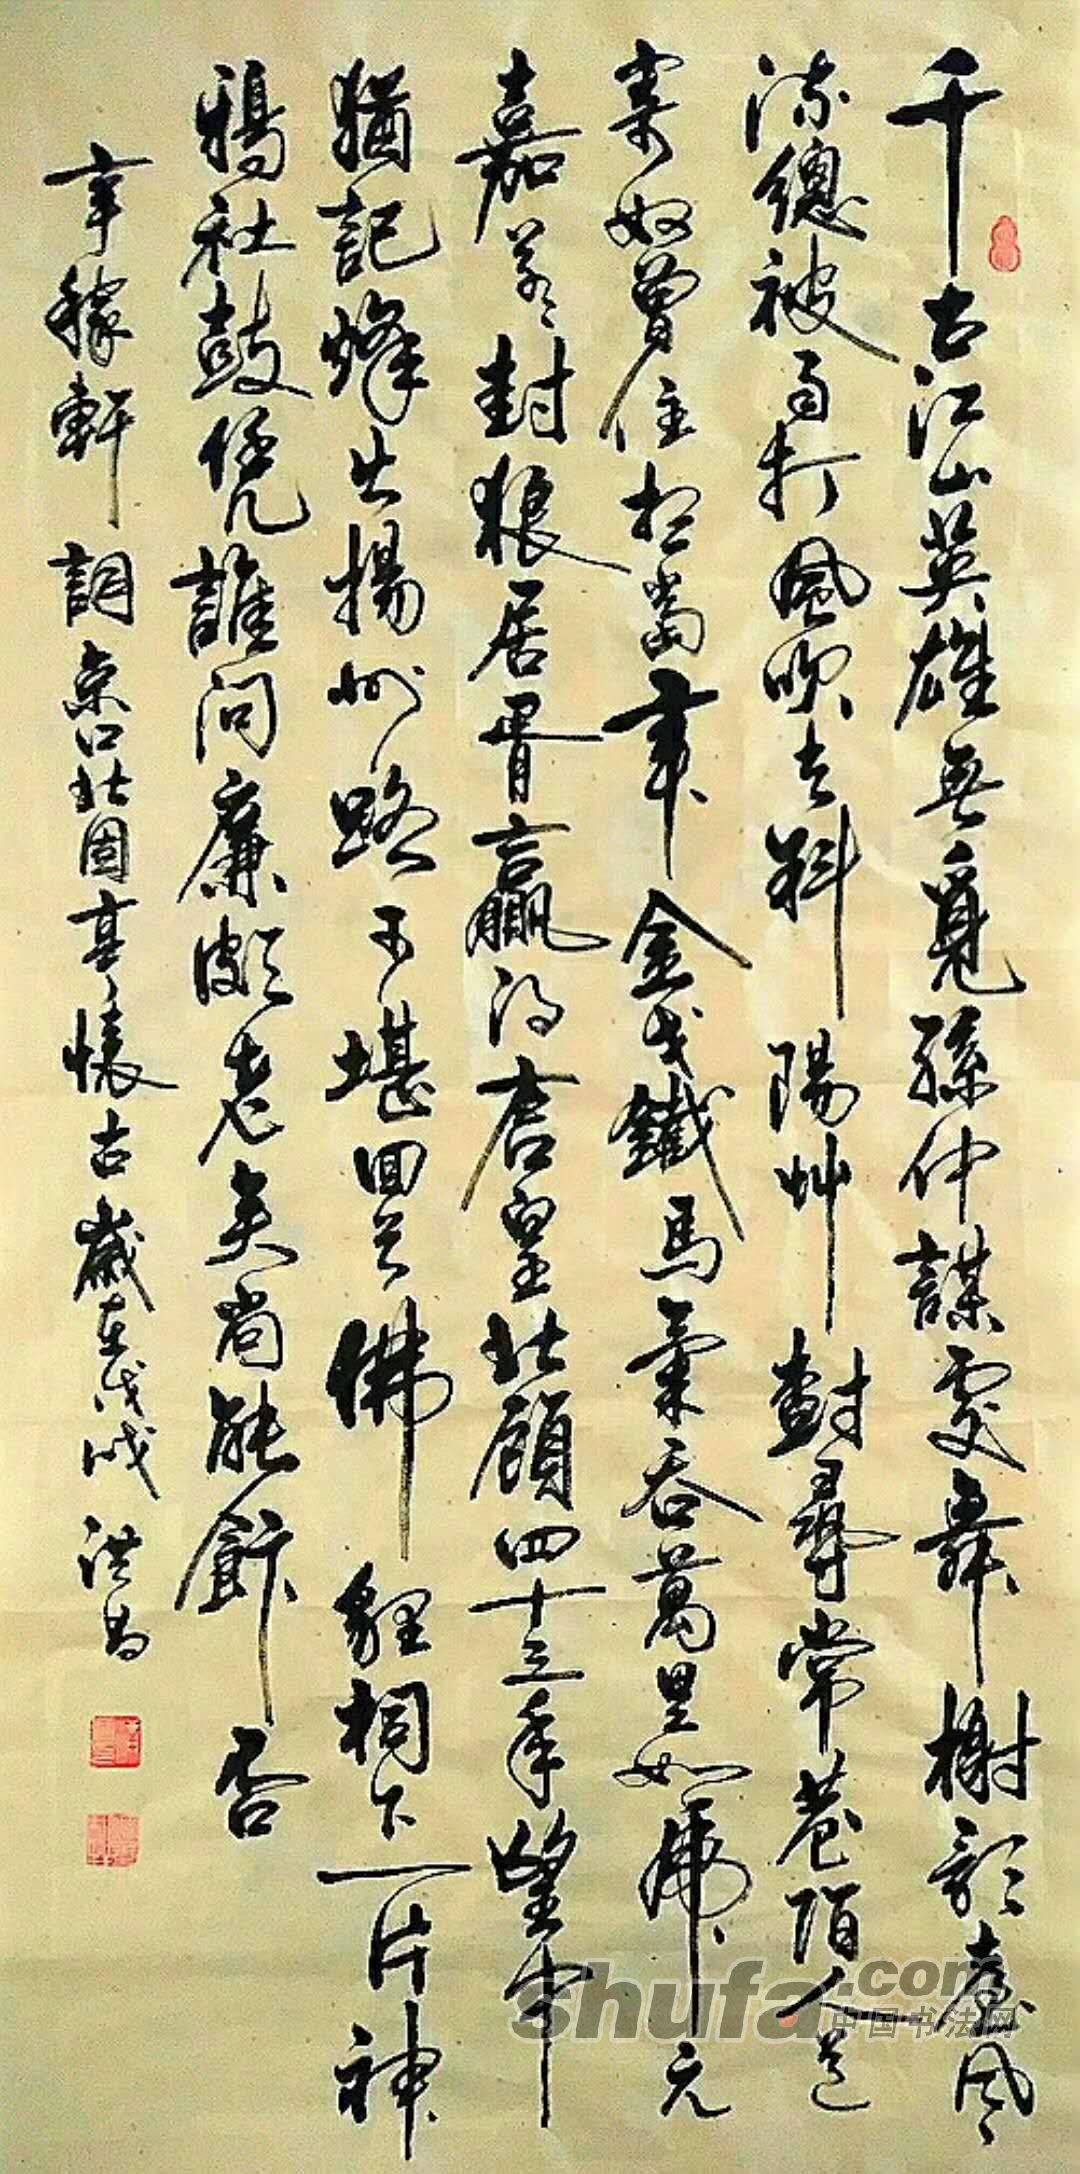 千古江山英雄無覓孫仲謀處舞榭歌臺風
流總被雨打風吹去斜陽艸樹尋常巷陌人道
寄奴曾住想當年金戈鐵馬氣吞萬里如虎元
嘉草〻封狼居胥贏得倉皇北顧四十三年望中
猶記烽火揚州路可堪回首佛貍祠下一片神
鴉社鼓凭誰問廉頗老矣尚能飯否
辛稼軒詞京口北固亭懷古歲在戊戌洪
shufa.com
中国书法网